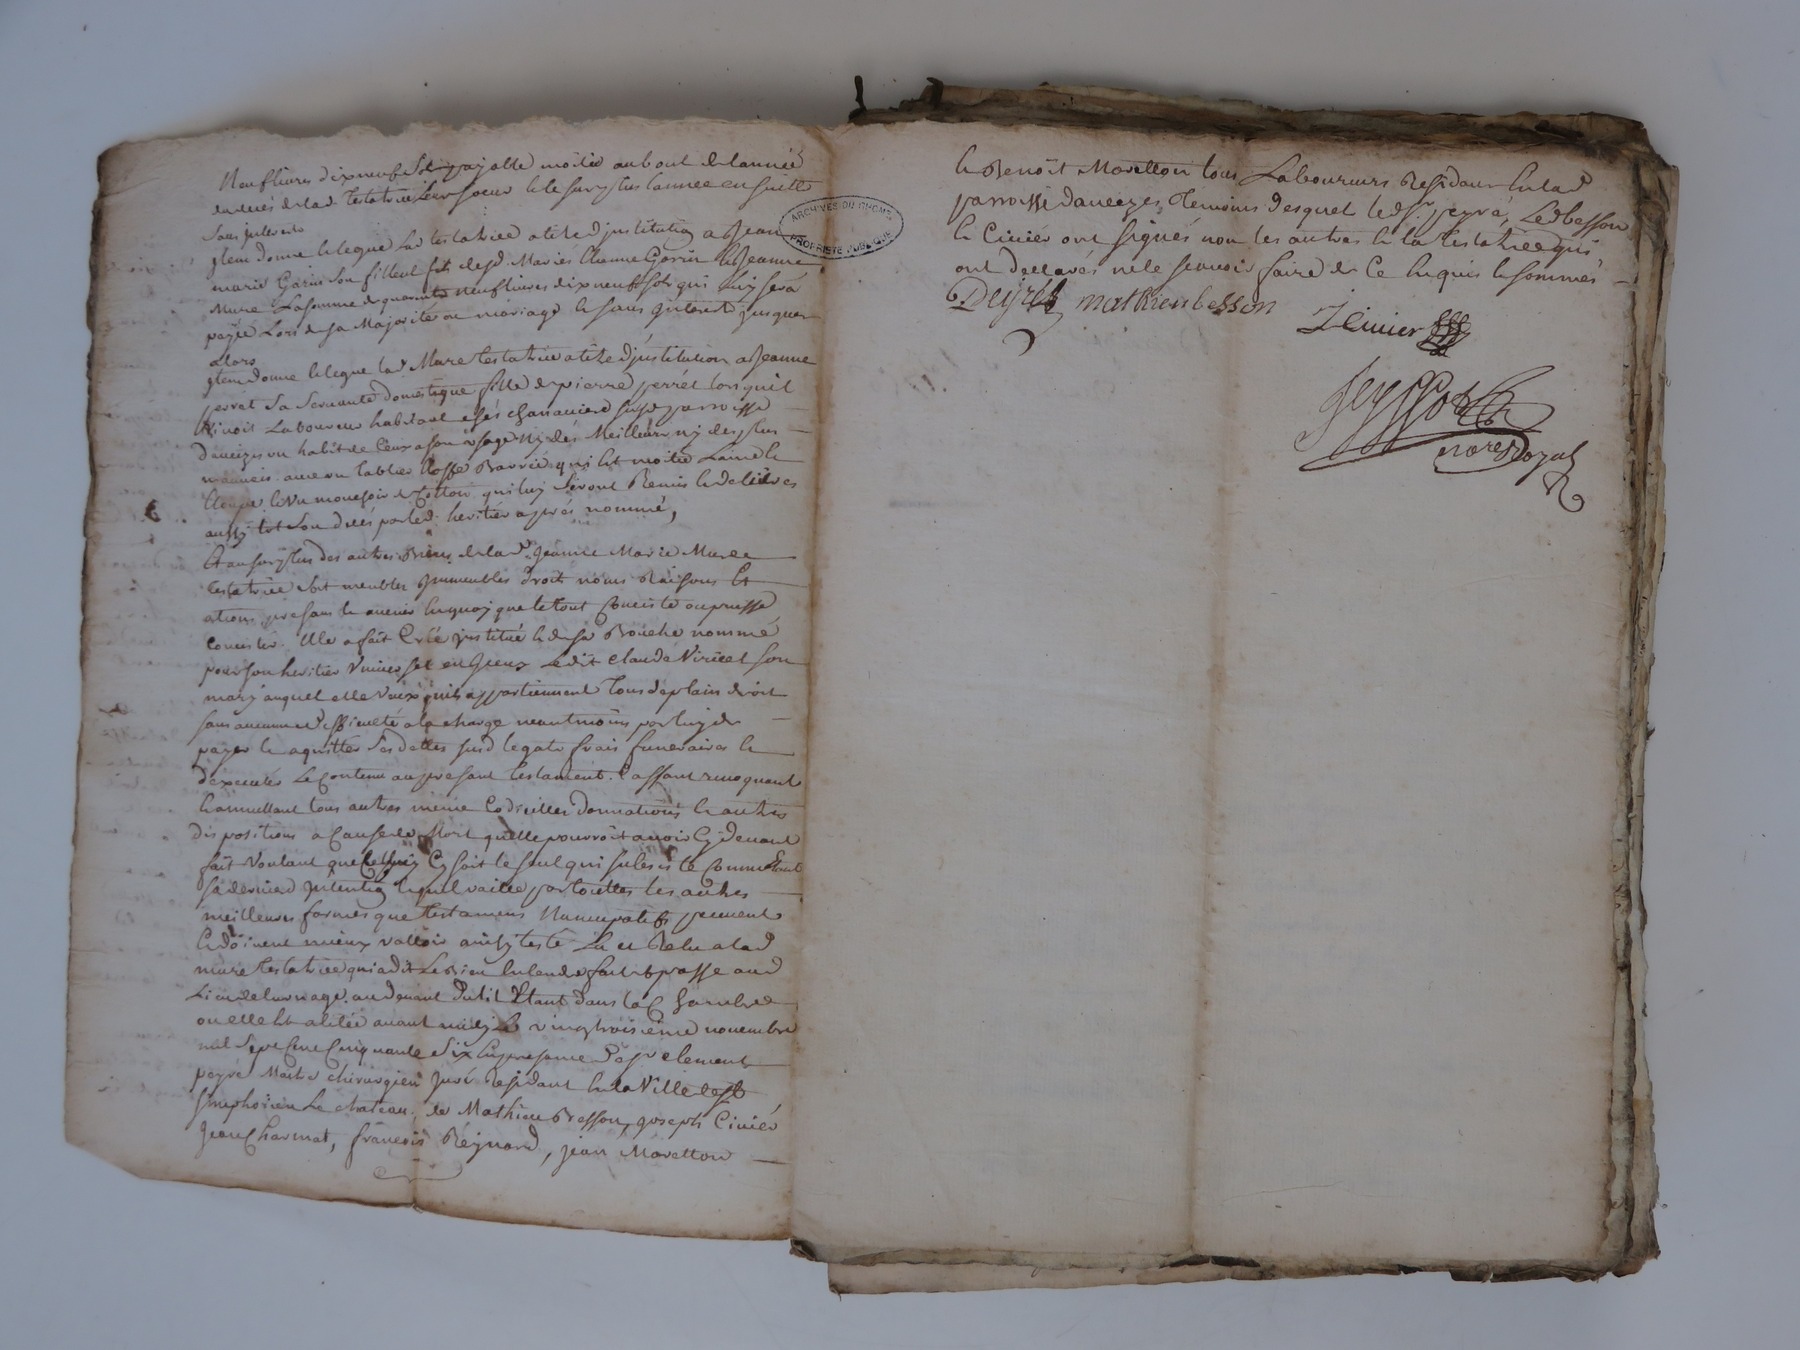 Neuf livres dixneuf sols payable moitié au bout de l'année
du decés de lad testatrice leur soeur et le surplus l'année ensuitte
sans interests
Item donne et legue lad testatrice a titre d'institution a Jean
marie Garin son filleul fils desd mariés Etienne Garin et Jeanne
Mure La somme de quarante neuf livres dixneuf sols qui luy sera
payée Lors de sa Majorité ou mariage et sans interests jusques
alors
Item donne et legue lad Mure testatrice a titre d'institution a Jeanne
perret sa servante domestique fille de pierre perret lorsquil
vivoit Laboureur habitant es chanaviere susd parroisse
d'aveizes un habit de a son usage ny des Meilleurs ny des plus
mauvais avec un tablier etoffe Barrée qui est moitié Laine et
et un mouchoir de Cotton qui luy seront Remis et delivrés
aussy tot son decés par led heritier aprés nommé,
Et au surplus des autres Biens de lad Jeanne Marie Mure
testatrice soit meubles immeubles droits noms Raisons et
ations presans et avenir en quoy que le tout Consiste ou puisse
Consister. Elle a fait Créé institué et de sa Bouche nommé
pour son heritier universel en iceux Ledit Claude Viricel son
mary auquel elle veux quils appartiennent tous de plain droit
sans aucune difficulté a la charge neantmoins par luy de
payer et aquitter ses dettes susd legats frais funeraires et
d'executer Le Contenu au presant testament. Cassant revoquant
et annullant tous autres même Codicilles donnations et autres
dispositions a Cause de Mort quelle pourroit avoir Cy devant
fait Voulant que Cy soit le seul qui subsiste Comme
sa derniere Intention et quil vaille par touttes les autres
meilleures formes que testamens Nuncupatifs peuvent
et doivent mieux valloir ainsy testé Lu et Relu a lad
mure testatrice qui a dit Le Bien Entendre fait et passé aud
Lieu de au devant du lit Etant dans la Chambre
ou elle est alitée avant midy Le vingt troisieme novembre
mil sept Cent Cinquante Six En presence de sr clement
peyré Maitre chirurgien juré Residant En la Ville de St
Simphorien Le chateau, de Mathieu Besson, Joseph Civier
Jean Charmat, françois Réynard, jean Maretton
et Benoit Maretton tous Laboureurs Residant En lad
parroisse d'aveizes, Temoins desquels led sr peyré, Led besson
et Civier ont signés non les autres et la testatrice qui
ont declarés ne le scavoir faire de Ce Enquis et sommés
Peyré mathieu besson
J Civier
nore Royal
ARCHIVES DU RHONE
PROPRIETE PUBLIQUE